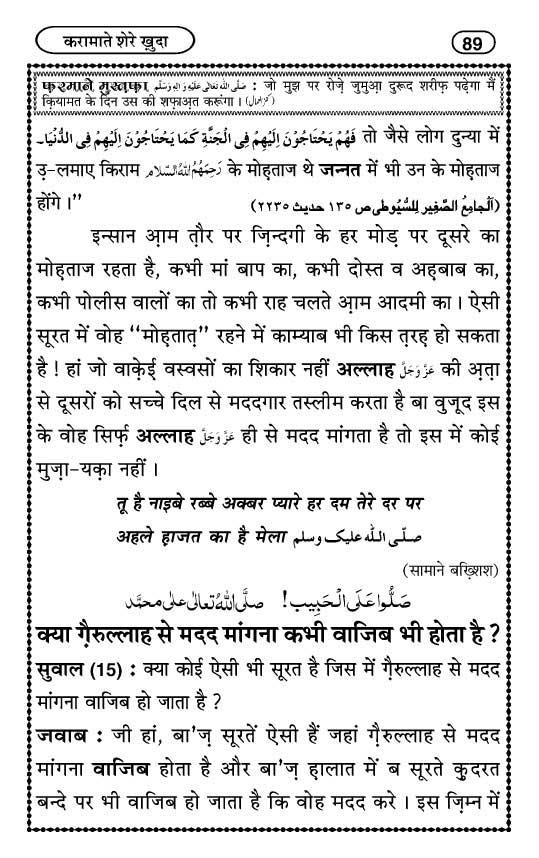 करामाते शेरे ख़ुदा
89
फ़रमाने मुस्तफ़ा صَلَّى اللهُ تَعَالٰى عَلَيْهِ وَاٰلِهٖ وَسَلَّم : जो मुझ पर रोज़े जुमुआ दुरूद शरीफ़ पढ़ेगा मैं
क़ियामत के दिन उस की शफ़ाअ़त करूंगा । (کنز العمال)
فَهُمْ يَحْتَاجُوْنَ اِلَيْهِمْ فِى الْجَنَّةِ كَمَا يَحْتَاجُوْنَ اِلَيْهِمْ فِى الدُّنْيَا۔ तो जैसे लोग दुन्या में
उ़-लमाए किराम رَحِمَهُمُ اللهُ السَّلَام के मोहताज थे जन्नत में भी उन के मोहताज
होंगे ।” (اَلْجامِعُ الصَّغِير لِلسُّيُوطى ص ١٣٥ حديث ٢٢٣٥)
इन्सान आ़म त़ौर पर ज़िन्दगी के हर मोड़ पर दूसरे का
मोहताज रहता है, कभी मां बाप का, कभी दोस्त व अह़बाब का,
कभी पोलीस वालों का तो कभी राह चलते आ़म आदमी का । ऐसी
सूरत में वोह “मोहतात़” रहने में काम्याब भी किस त़रह़ हो सकता
है ! हां जो वाक़ेई वस्वसों का शिकार नहीं अल्लाह عَزَّوَجَلَّ की अ़त़ा
से दूसरों को सच्चे दिल से मददगार तस्लीम करता है बा वुजूद इस
के वोह सिर्फ़ अल्लाह عَزَّوَجَلَّ ही से मदद मांगता है तो इस में कोई
मुज़ा-यक़ा नहीं ।
तू है नाइबे रब्बे अक्बर प्यारे हर दम तेरे दर पर
अहले ह़ाजत का है मेला صلّی اللہ علیک وسلم
(सामाने बख़्शिश)
صَلُّوْا عَلَى الْحَبِيْب! صلَّى اللهُ تعالٰى علٰى محمَّد
क्या ग़ैरुल्लाह से मदद मांगना कभी वाजिब भी होता है ?
सुवाल (15) : क्या कोई ऐसी भी सूरत है जिस में ग़ैरुल्लाह से मदद
मांगना वाजिब हो जाता है ?
जवाब : जी हां, बा'ज़ सूरतें ऐसी हैं जहां ग़ैरुल्लाह से मदद
मांगना वाजिब होता है और बा'ज़ ह़ालात में ब सूरते कु़दरत
बन्दे पर भी वाजिब हो जाता है कि वोह मदद करे । इस ज़िम्न में